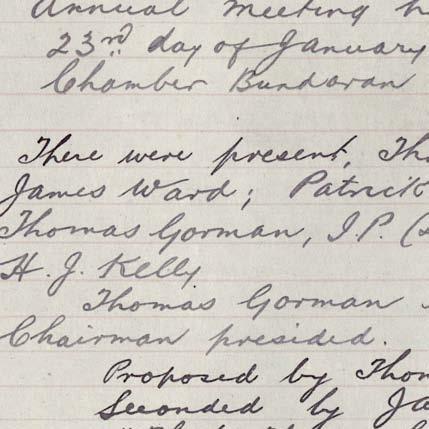 Annual Meeting h
23rd day of January
Chamber Bundoran
There were present, Th
James Ward; Patrick
Thomas Gorman, J.P. (
H. J. Kelly
Thomas Gorman
Chairman presided.
Proposed by Thom
Seconded by Ja